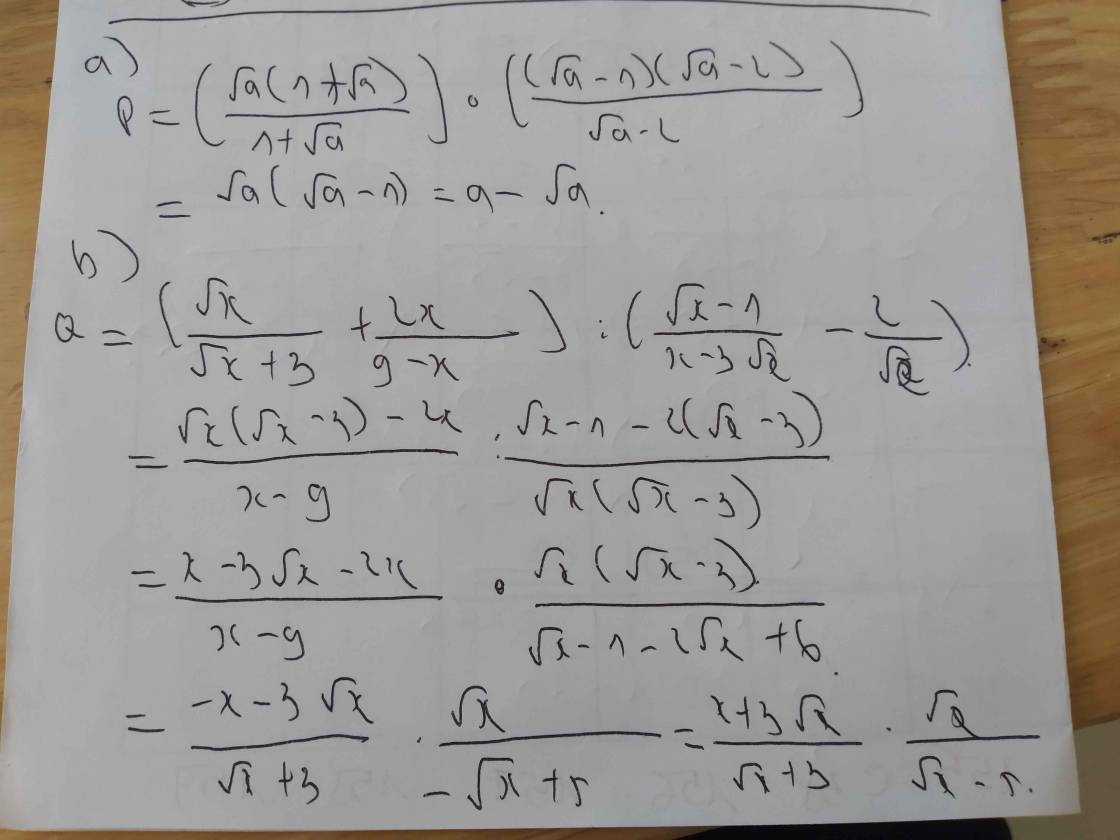 a)
P = (√a(1+√a) / 1+√a) . ((√a-1)(√a-2) / √a-2)
= √a(√a-1) = a - √a.
b)
Q = (√x / √x+3 + 2x / 9-x) : (√x-1 / x-3√x - 2 / √x).
= √x(√x-3)-2x / x-9 : √x-1-2(√x-3) / √x(√x-3)
= x-3√x-2x / x-9 . √x(√x-3) / √x-1-2√x+6.
= -x-3√x / √x+3 . √x / -√x+5 = x+3√x / √x+3 . √x / √x-5.